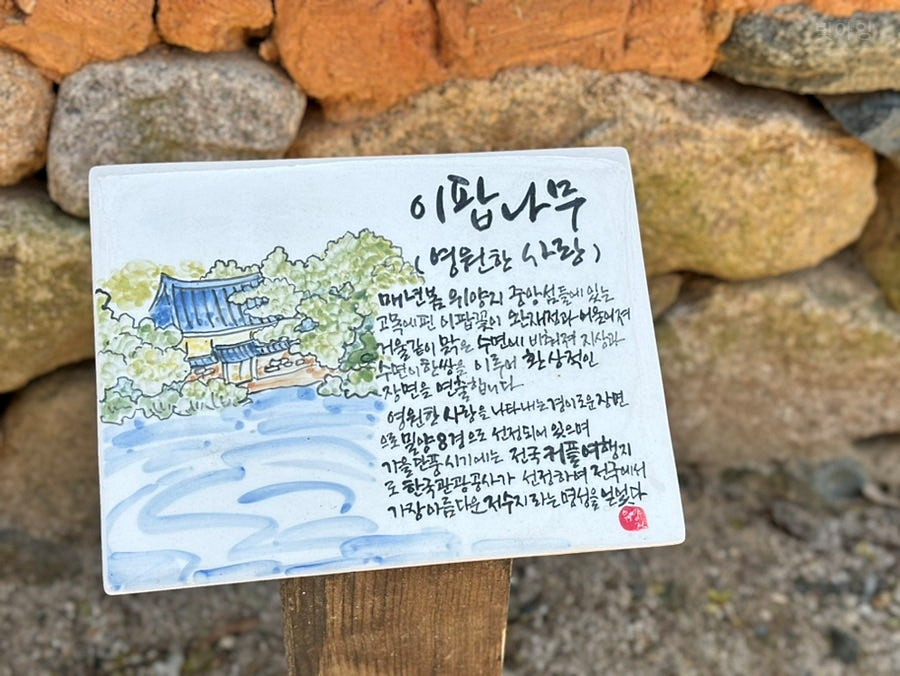 이팝나무
(영원한 사랑)
매년봄 위양지 중앙섬들에 있는
고목에핀 이팝꽃이 완재정과 어우러져
거울같이 맑은 수면에 비춰져 지상과
수면이 한쌍을 이루어 환상적인
장면을 연출합니다
영원한 사랑을 나타내는 경이로운 장면
으로 밀양8경으로 선정되어 있으며
가을단풍시기에는 전국커플여행지
로 한국관광공사가 선정하며 전국에서
가장아름다운 저수지라는 명성을 얻었다
위양지